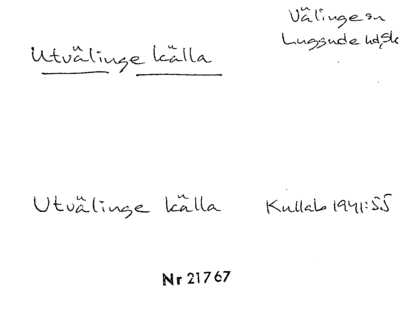 Välinge sn
Luggude hd, Sk
Utvälinge källa
Utvälinge källa Kullab 1941:55
Nr 21767